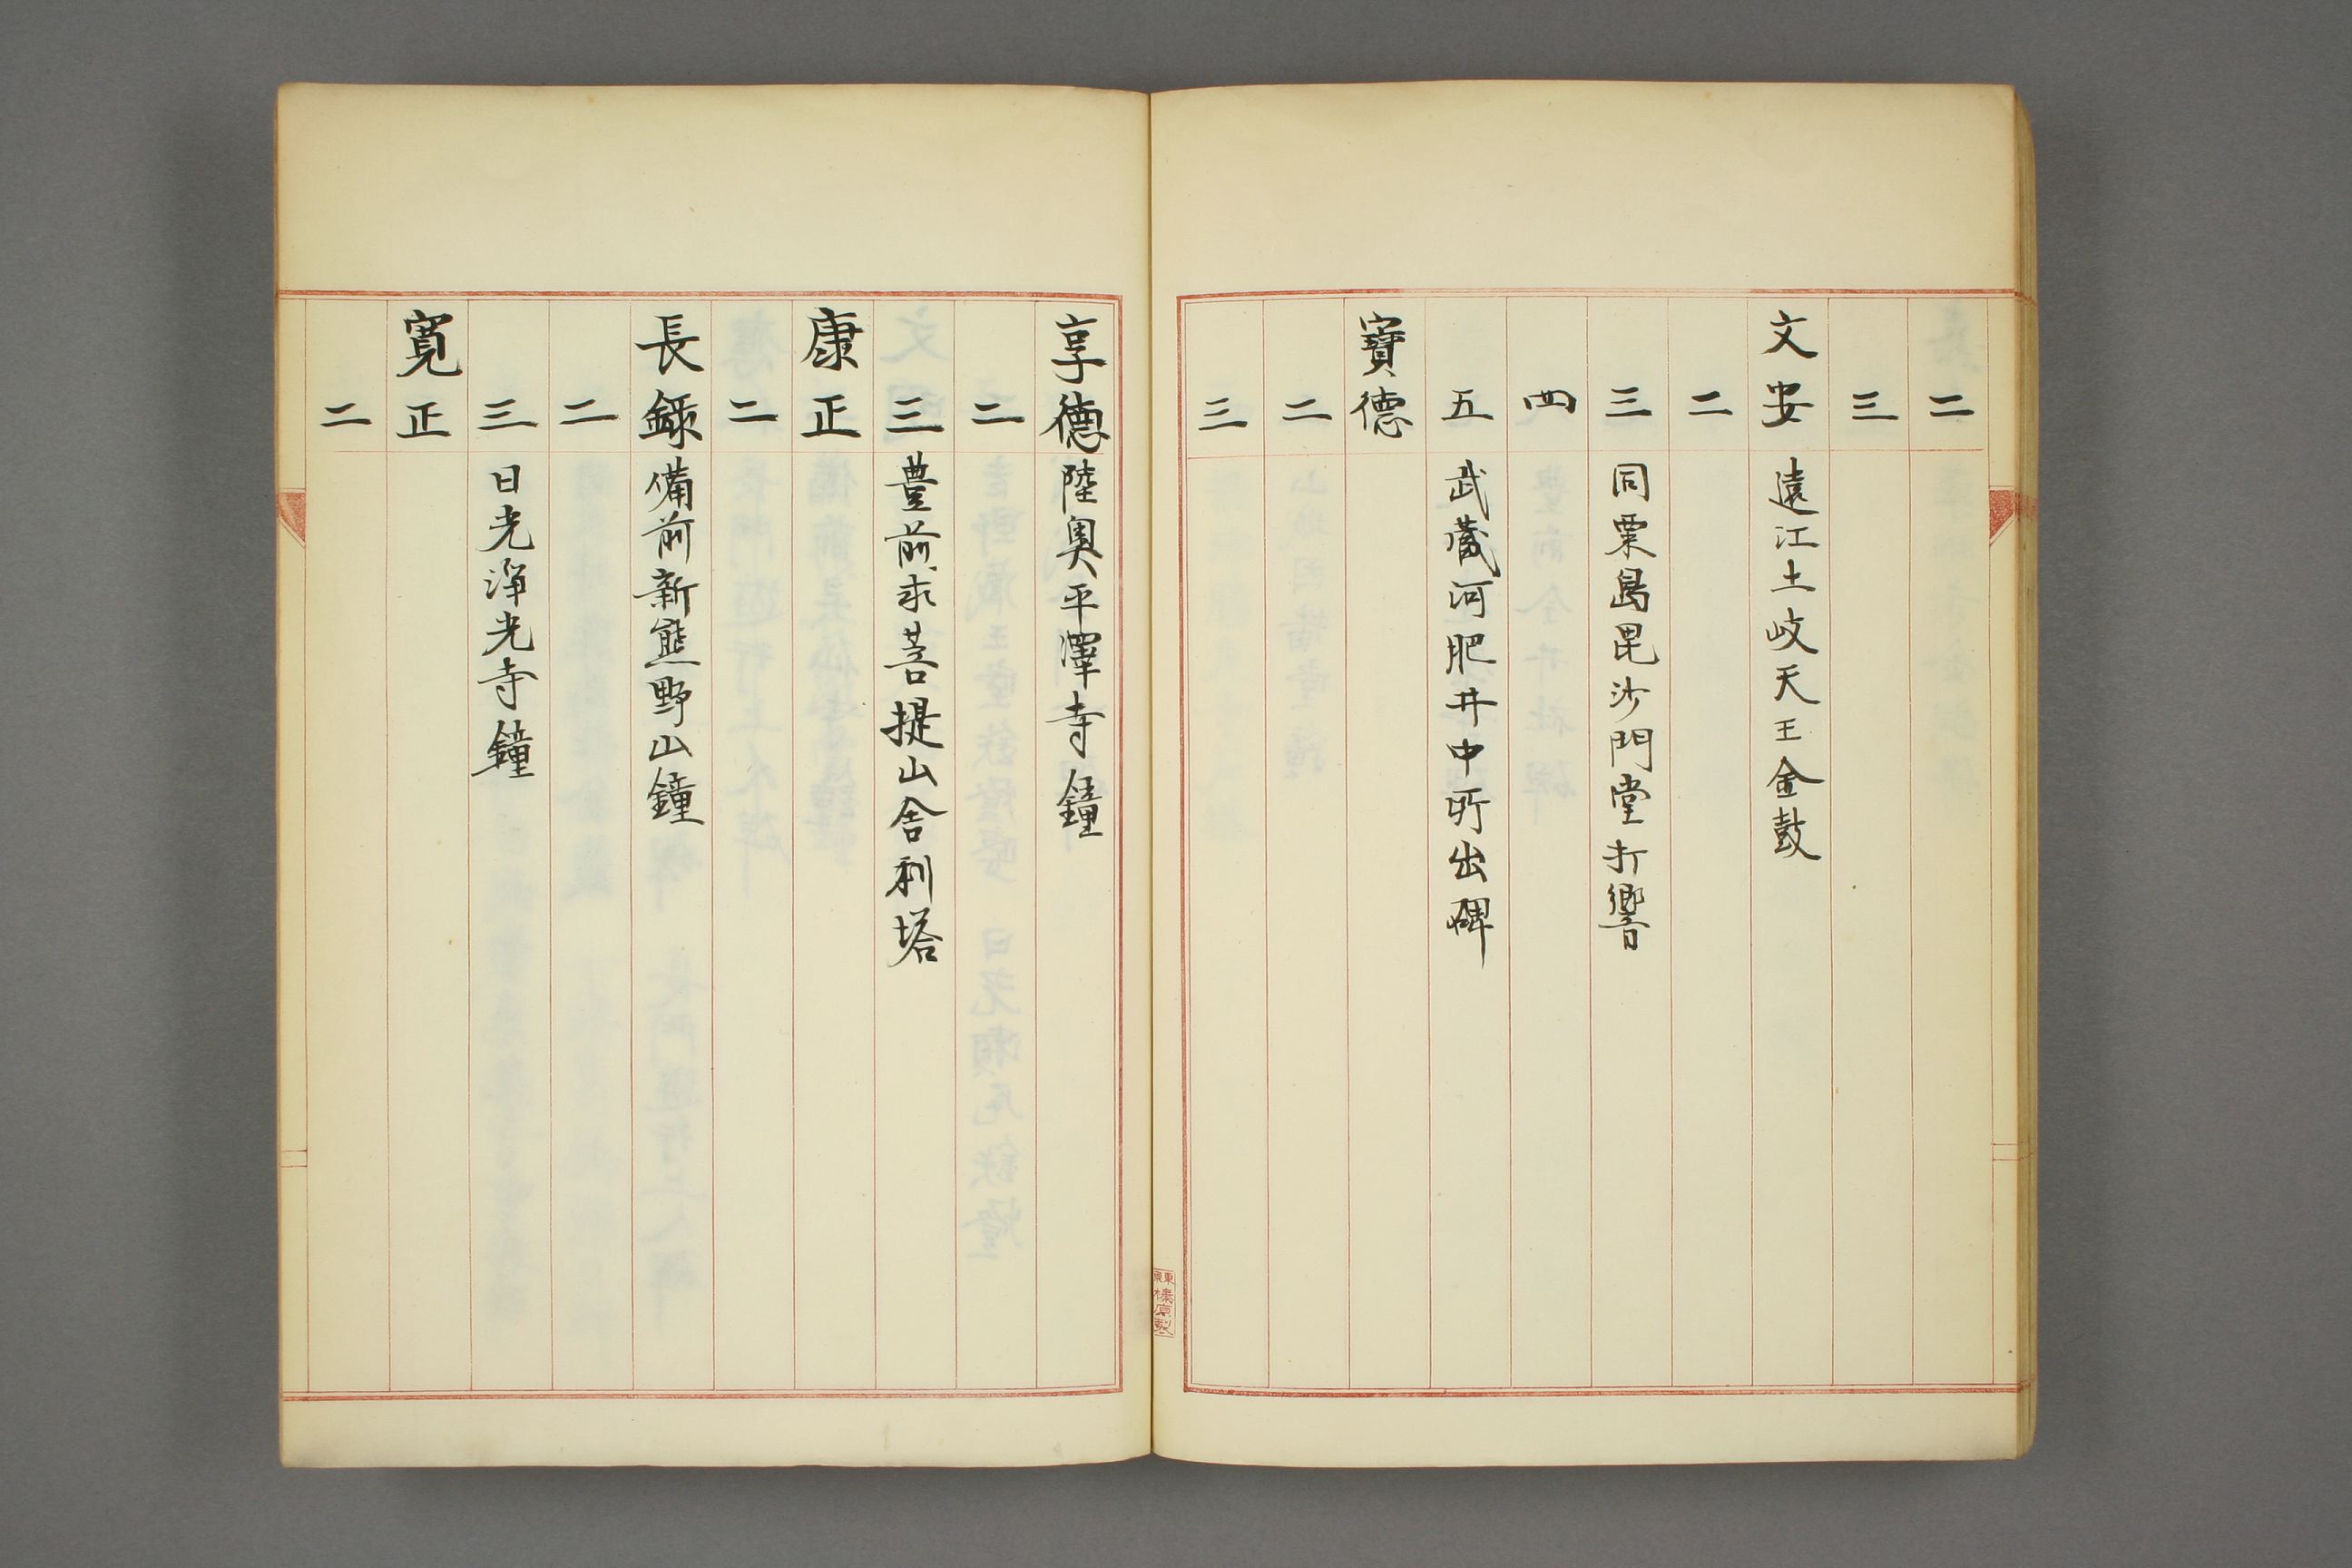 二
三
文安 遠江土岐天王金鼓
二
三 同粟島毘沙門堂打響
四
五 武蔵河肥井中所出碑
寶德
二
三
享德 陸奥平澤寺鐘
二
三 豊前求菩提山舎利塔
康正
二
長録 備前新熊野山鐘
二
三 日光淨光寺鐘
寛正
二
榛原製